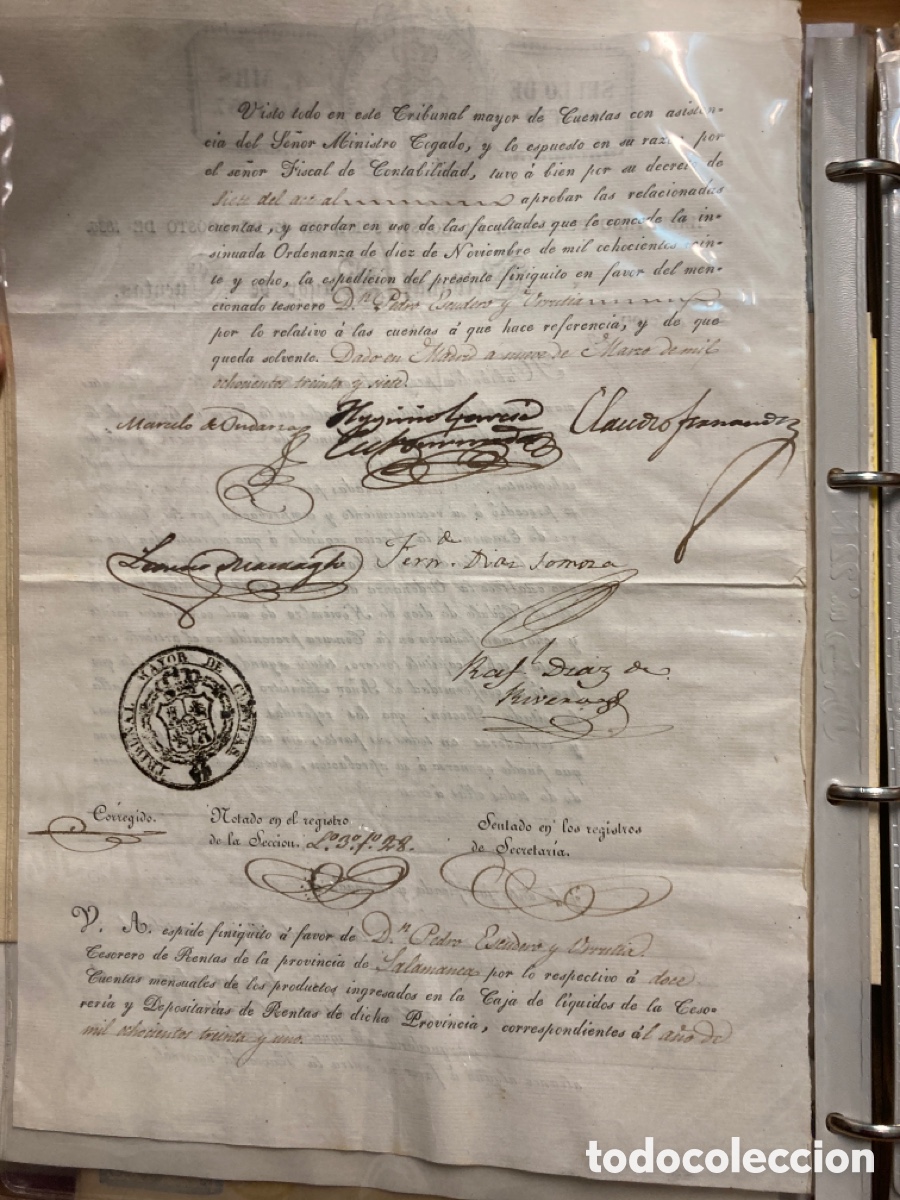 Visto todo en este Tribunal mayor de Cuentas con asisten-
cia del Señor Ministro Togado, y lo espuesto en su razon por
el señor Fiscal de Contabilidad, tuvo á bien por su decreto de
siete del actual aprobar las relacionadas
cuentas, y acordar en uso de las facultades que le concede la in-
sinuada Ordenanza de diez de Noviembre de mil ochocientos vein-
te y ocho, la espedicion del presente finiquito en favor del men-
cionado tesorero D.ⁿ Pedro Escudero y Urrutia
por lo relativo á las cuentas á que hace referencia, y de que
queda solvente. Dado en Madrid a nueve de Marzo de mil
ochocientos treinta y siete.
Marcelo de Ondarza
Claudio Fernandez
Fern.do Diaz Somoza
Raf.l Diaz de
Rivera
TRIBUNAL MAYOR DE CUENTAS
Córregido.
Notado en el registro
de la Seccion. L.o 3.o f.o 28.
Sentado en los registros
de Secretaría.
V. A. espide finiqüito á favor de D.ⁿ Pedro Escudero y Urrutia
Tesorero de Rentas de la provincia de Salamanca por lo respectivo á doce
Cuentas mensuales de los productos ingresados en la Caja de líquidos de la Teso-
rería y Depositarías de Rentas de dicha Provincia, correspondientes ál año de
mil ochocientos treinta y uno.
todocoleccion